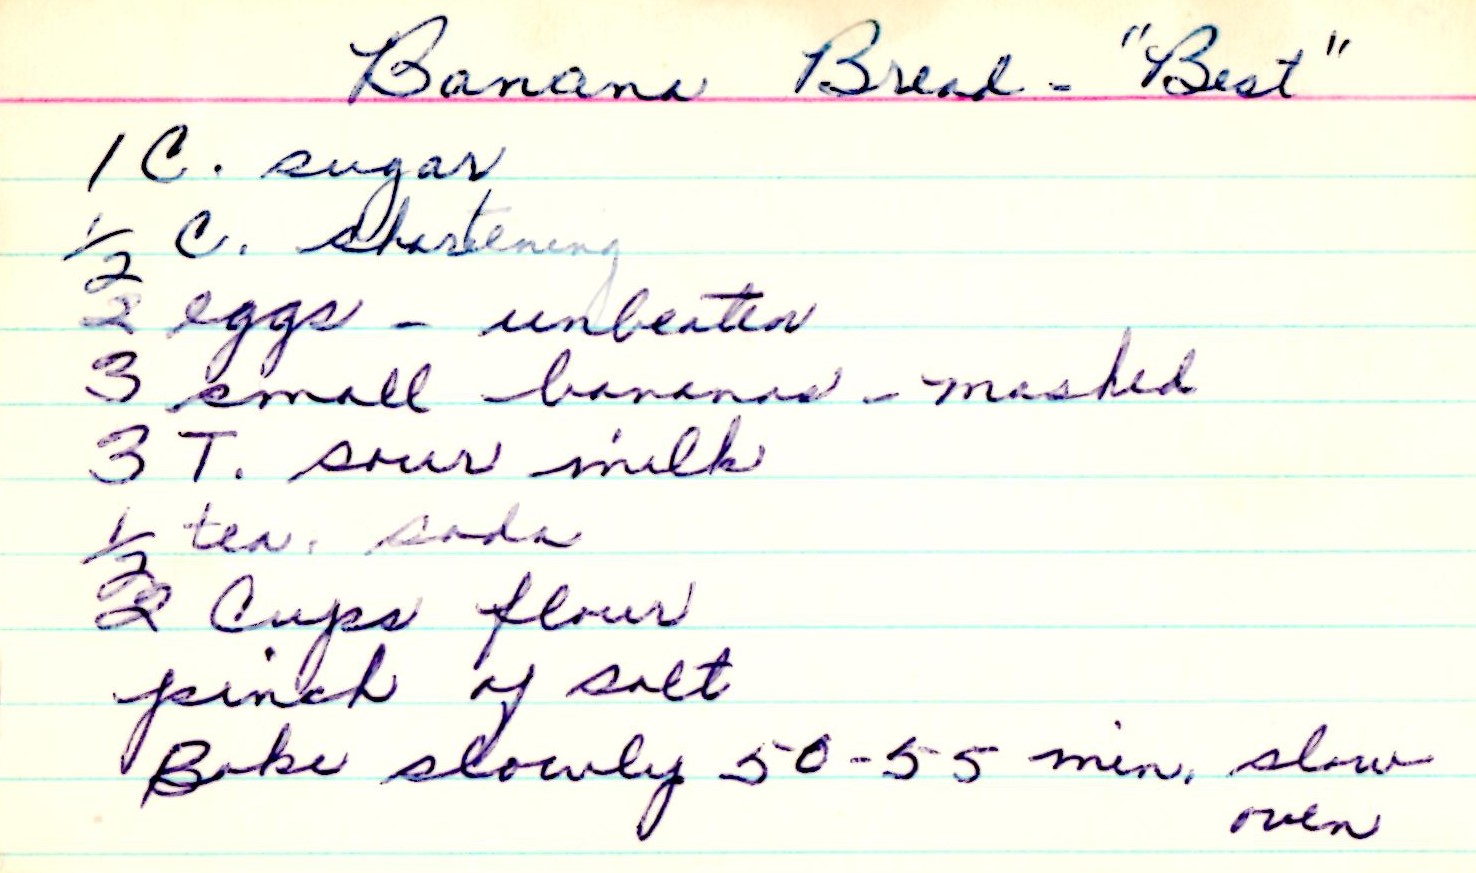 Banana Bread - "Best"
1 C. sugar
1/2 C. shortening
2 eggs - unbeaten
3 small bananas - mashed
3 T. sour milk
1/2 tea. soda
2 Cups flour
pinch of salt
Bake slowly 50-55 min. slow
oven